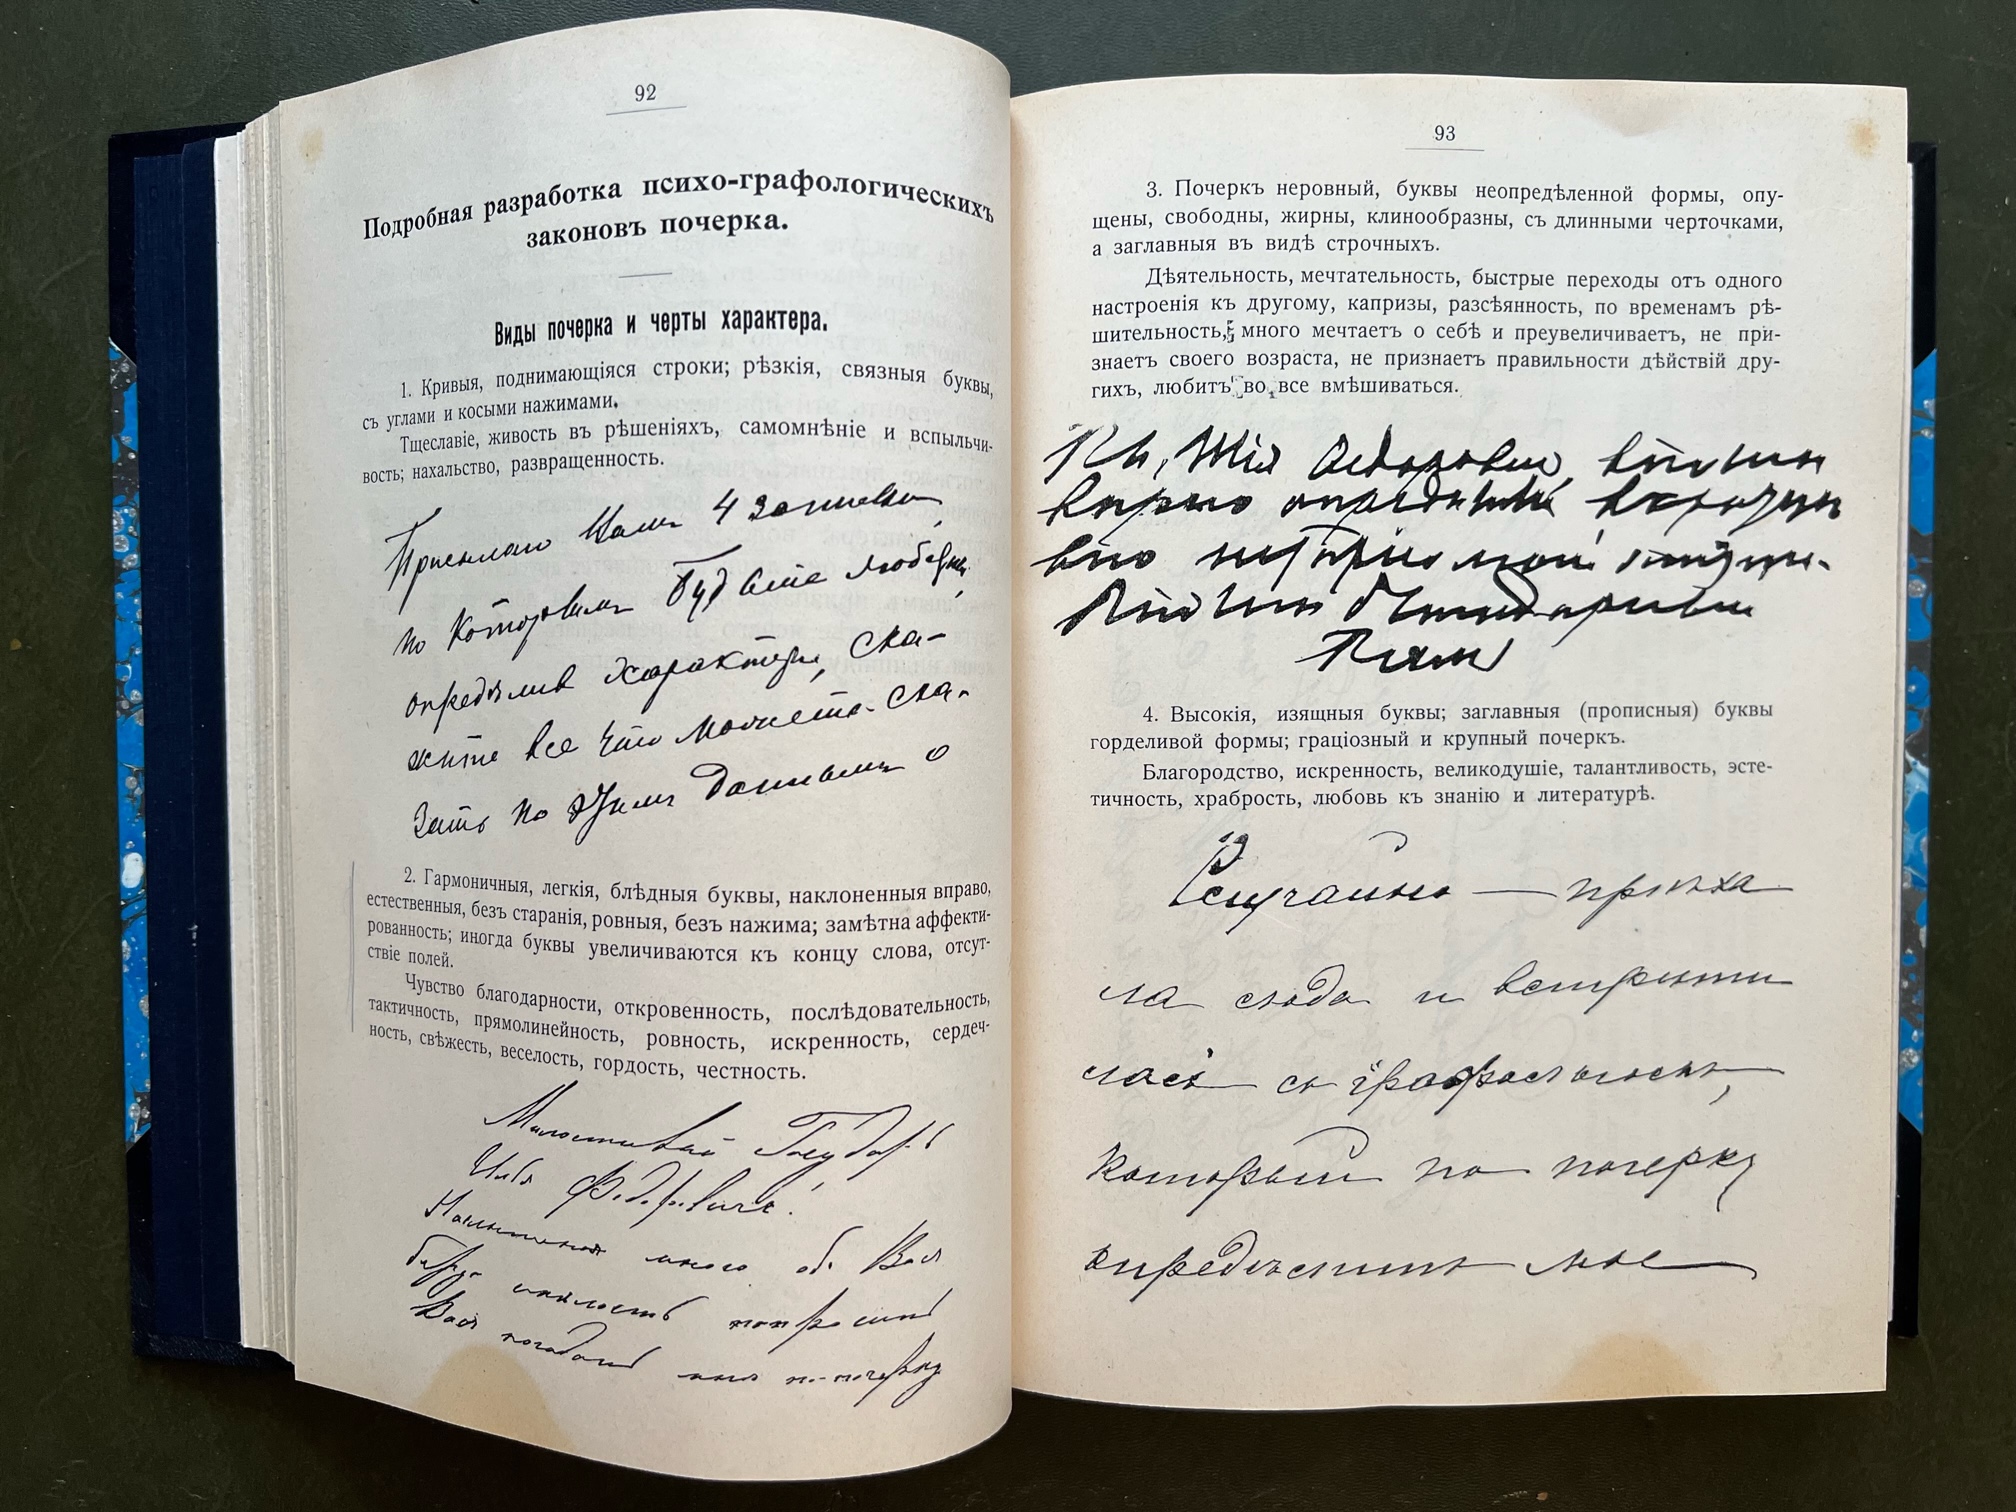 92
Подробная разработка психо-графологическихъ
законовъ почерка.
Виды почерка и черты характера.
1. Кривыя, поднимающіяся строки; рѣзкія, связныя буквы,
съ углами и косыми нажимами.
Тщеславіе, живость въ рѣшеніяхъ, самомнѣніе и вспыльчи-
вость; нахальство, развращенность.
Присылаю Вамъ 4 записки
по которымъ будьте любезны,
опредѣливъ характеры, ска-
жите все что можете ска-
зать по этимъ даннымъ о
2. Гармоничныя, легкія, блѣдныя буквы, наклоненныя вправо,
естественныя, безъ старанія, ровныя, безъ нажима; замѣтна аффекти-
рованность; иногда буквы увеличиваются къ концу слова, отсут-
ствіе полей.
Чувство благодарности, откровенность, послѣдовательность,
тактичность, прямолинейность, ровность, искренность, сердеч-
ность, свѣжесть, веселость, гордость, честность.
Милостивый Государь
Илья Федоровичъ!
Наслышанъ много объ Васъ
беру смѣлость попросить
Васъ погадать мнѣ по почерку
93
3. Почеркъ неровный, буквы неопредѣленной формы, опу-
щены, свободны, жирны, клинообразны, съ длинными черточками,
а заглавныя въ видѣ строчныхъ.
Дѣятельность, мечтательность, быстрые переходы отъ одного
настроенія къ другому, капризы, разсѣянность, по временамъ рѣ-
шительность, много мечтаетъ о себѣ и преувеличиваетъ, не при-
знаетъ своего возраста, не признаетъ правильности дѣйствій дру-
гихъ, любитъ во все вмѣшиваться.
Илья Федоровичъ вполнѣ
вѣрно
4. Высокія, изящныя буквы; заглавныя (прописныя) буквы
горделивой формы; граціозный и крупный почеркъ.
Благородство, искренность, великодушіе, талантливость, эсте-
тичность, храбрость, любовь къ знанію и литературѣ.
Случайно — пріѣха
ла сюда и встрѣти
лась съ графологомъ,
который по почерку
опредѣлитъ мое